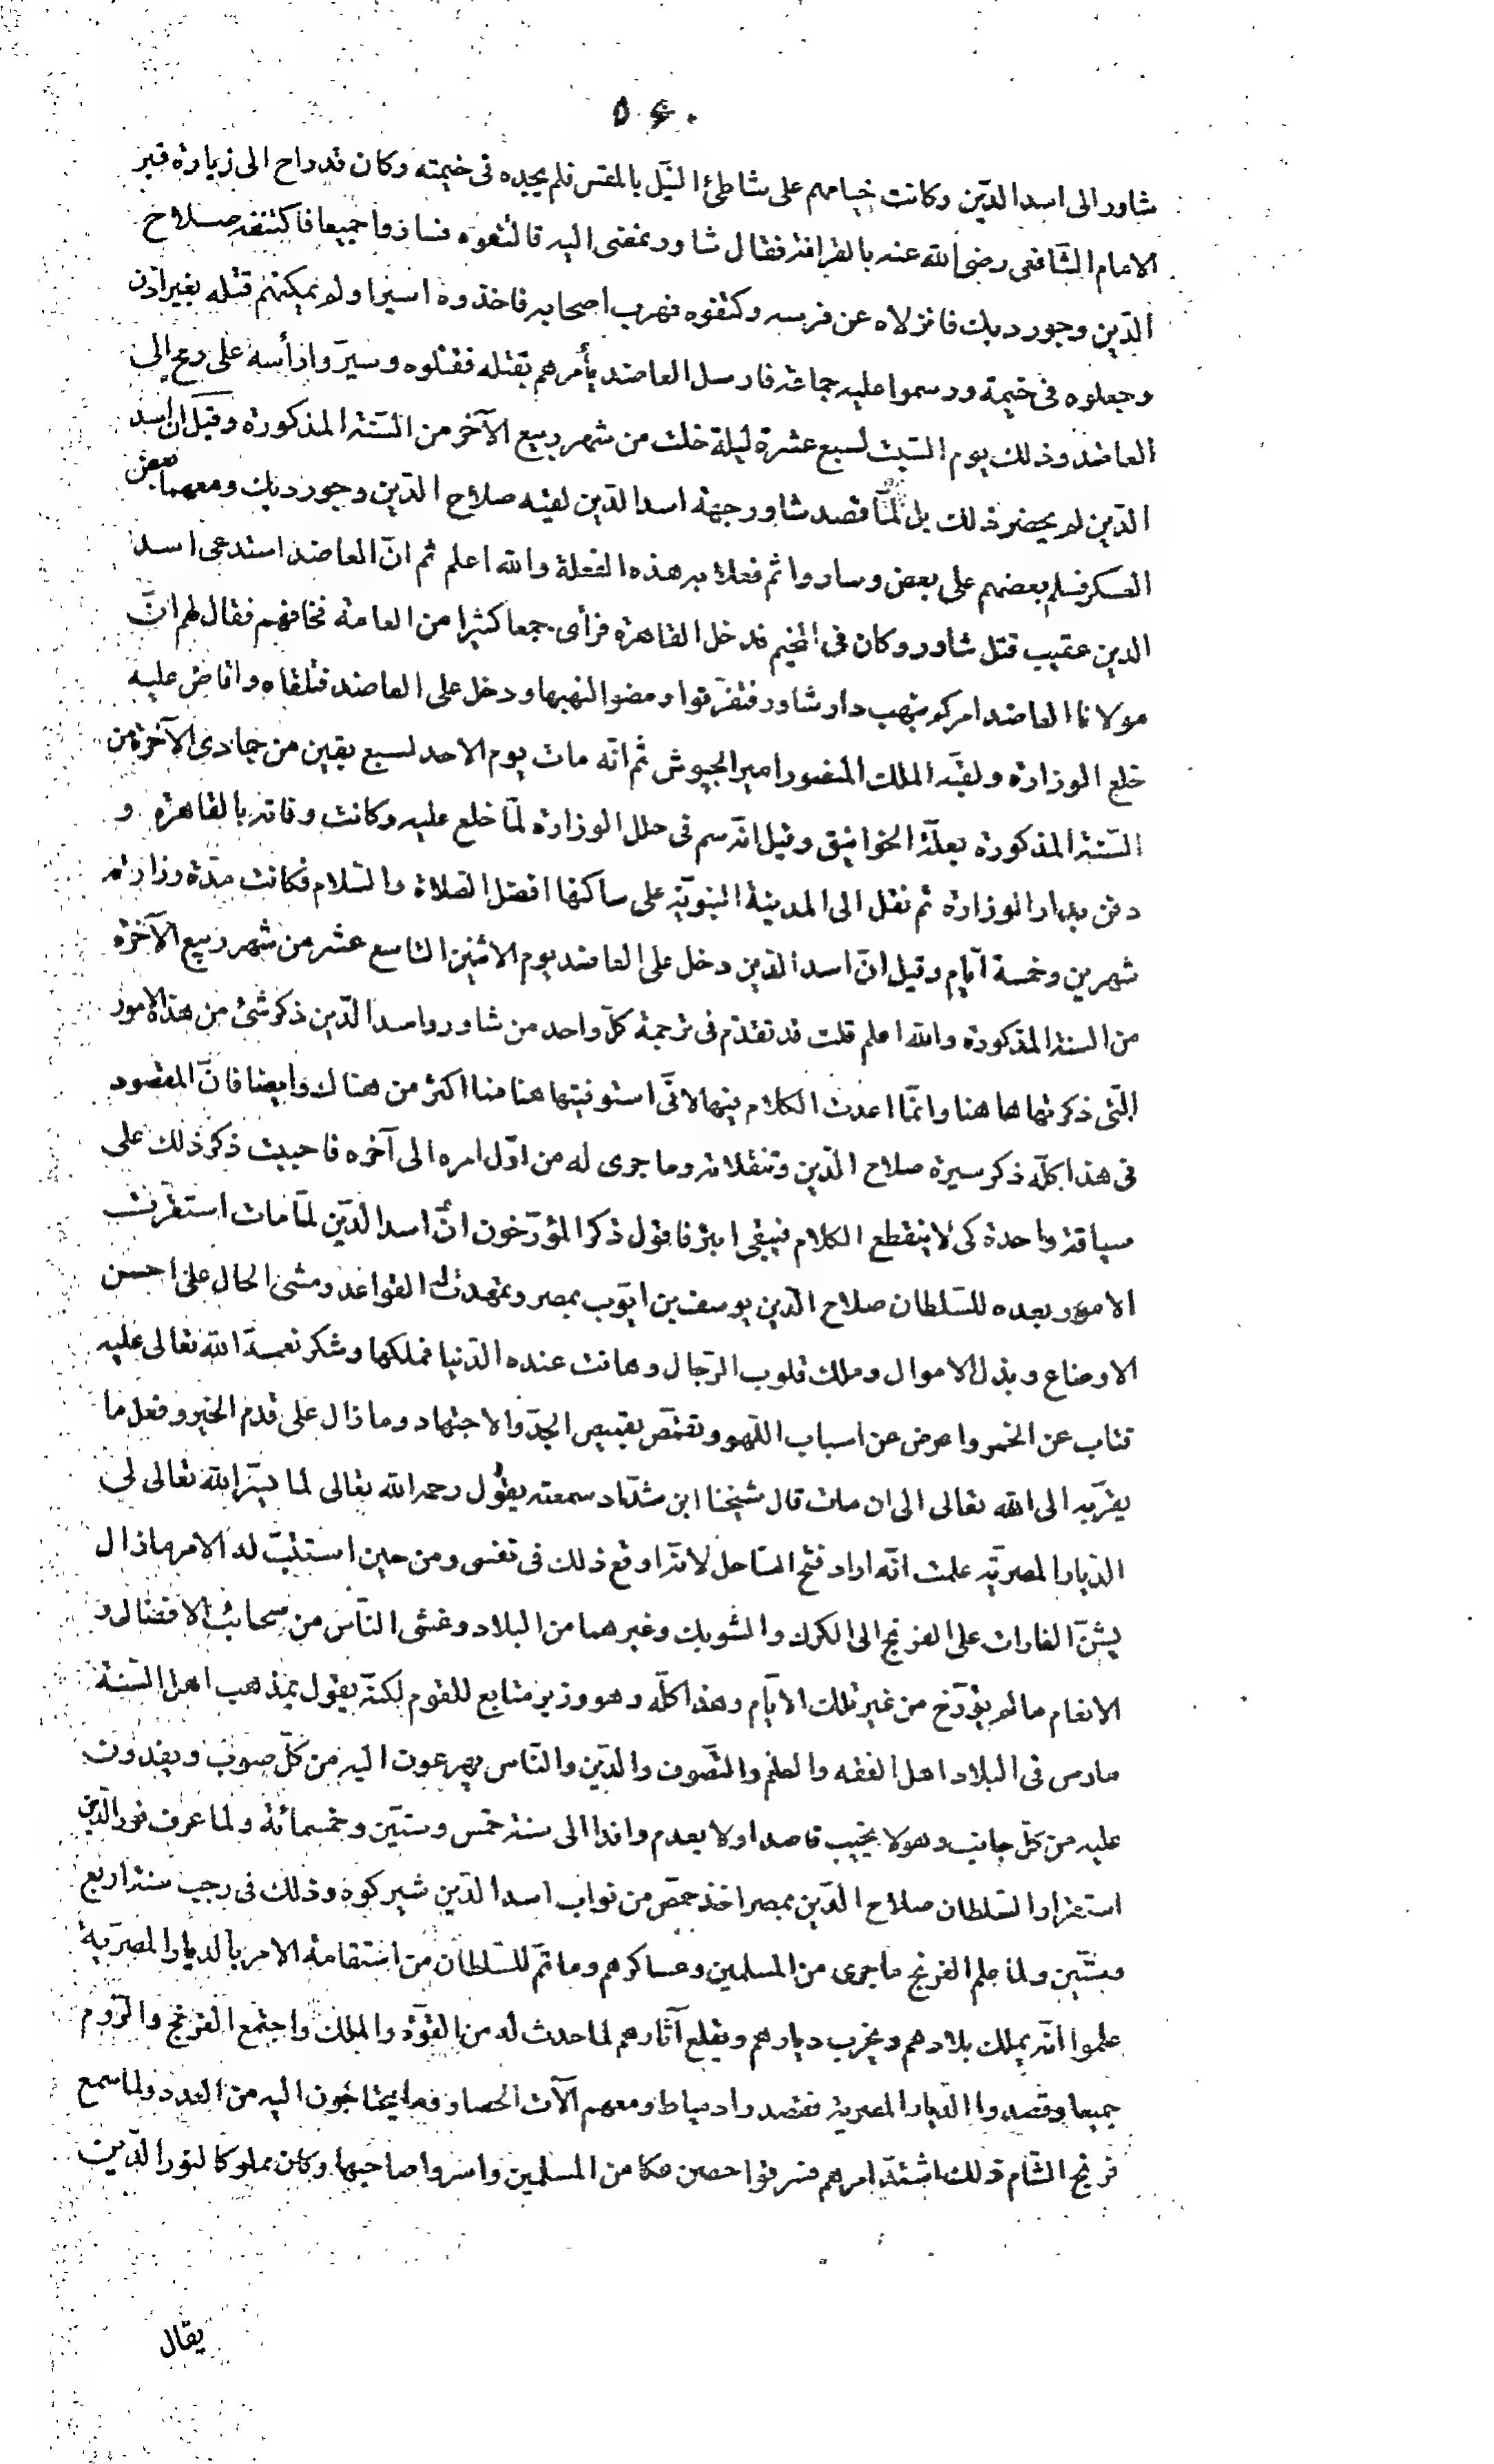 ٥٤٠
شاور الى اسد الدّين وكانت خيامهم على شاطئ النّيل بالمقس فلم يجده فى خيمته وكان قد راح الى زيارة قبر
الامام الشّافعى رضى الله عنه بالقرافة فقال شاور نمضى اليه قالتقوه فساروا جميعا فاكتنفه صلاح
الدّين وجورديك فانزلاه عن فرسه وكتفوه فهرب اصحابه فاخذوه اسيرا ولم يمكنهم قتله بغير اذن
وجعلوه فى خيمة ورسموا عليه جماعة فارسل العاضد يأمرهم بقتله فقتلوه وسيّروا رأسه على رمح الى
العاضد وذلك يوم السّبت لسبع عشرة ليلة خلت من شهر ربيع الآخر من السّنة المذكورة وقيل ان اسد
الدّين لم يحضر ذلك بل لمّا قصد شاور جهة اسد الدّين لقيه صلاح الدّين وجورديك ومعهما بعض
العسكر فسلم بعضهم على بعض وساروا ثم فعلا به هذه الفعلة والله اعلم ثم انّ العاضد استدعى اسد
الدين عقيب قتل شاور وكان فى المخيم فدخل القاهرة فرأى جمعا كثيرا من العامة فخافهم فقال لهم انّ
مولانا العاضد امركم بنهب دار شاور فتفرّقوا ومضوا لنهبها ودخل على العاضد فتلقاه وافاض عليه
خلع الوزارة ولقّبه الملك المنصور امير الجيوش ثم انّه مات يوم الاحد لسبع بقين من جمادى الآخرة من
السّنة المذكورة بعلّة الخوانيق وقيل انّه سم فى حلل الوزارة لمّا خلع عليه وكانت وفاته بالقاهرة و
دفن بدار الوزارة ثم نقل الى المدينة النبويّة على ساكنها افضل الصّلاة والسّلام فكانت مدّة وزارته
شهرين وخمسة ايّام وقيل انّ اسد الدّين دخل على العاضد يوم الاثنين التاسع عشر من شهر ربيع الآخرة
من السنة المذكورة والله اعلم قلت قد تقدّم فى ترجمة كلّ واحد من شاور واسد الدّين ذكر شئ من هذه الامور
الّتى ذكرتها ها هنا وانّما اعدت الكلام فيها لانّى استوفيتها هنا اكثر من هناك وايضا فانّ المقصود
فى هذا كلّه ذكر سيرة صلاح الدّين وتنقلاته وما جرى له من اوّل امره الى آخره فاحببت ذكر ذلك على
سياقة واحدة كى لا ينقطع الكلام فيبقى ابتر فاقول ذكر المؤرّخون انّ اسد الدّين لمّا مات استقرّت
الامور بعده للسّلطان صلاح الدّين يوسف بن ايّوب بمصر وتمهدت له القواعد ومشى الحال على احسن
الاوضاع وبذل الاموال وملك قلوب الرّجال وهانت عنده الدّنيا فملكها وشكر نعمة الله تعالى عليه
فتاب عن الخمر واعرض عن اسباب اللّهو وتقمّص بقميص الجدّ والاجتهاد وما زال على قدم الخير وفعل ما
يقرّبه الى الله تعالى الى ان مات قال شيخنا ابن شدّاد سمعته يقول رحمه الله تعالى لما يسّر الله تعالى لى
الدّيار المصريّة علمت انّه اراد فتح السّاحل لانّه اوقع ذلك فى نفسى ومن حين استتبّ له الامر ما زال
يشنّ الغارات على الفرنج الى الكرك والشوبك وغيرهما من البلاد وغشى النّاس من سحائب الافضال و
الانعام ما لم يؤرّخ من غير تلك الايّام وهذا كلّه وهو وزير متابع للقوم لكنّه يقول بمذهب اهل السّنة
مارس فى البلاد اهل الفقه والعلم والتصّوف والدّين والنّاس يهرعون اليه من كلّ صوب ويفدون
عليه من كلّ جانب وهو لا يخيّب قاصدا ولا يعدم وافدا الى سنة خمس وستّين وخمسمائة ولما عرف نور الدّين
استقرار السّلطان صلاح الدّين بمصر اخذ حمص من نواب اسد الدّين شيركوه وذلك فى رجب سنة اربع
وستّين ولما علم الفرنج ما جرى من المسلمين وعساكرهم وما تمّ للسّلطان من استقامة الامر بالديار المصريّة
علموا انّه يملك بلادهم ويخرب ديارهم ويقلع آثارهم لما حدث له من القوّة والملك واجتمع الفرنج والرّوم
جميعا وقصدوا الدّيار المصرية فقصدوا دمياط ومعهم آلات الحصار وما يحتاجون اليه من العدد ولما سمع
فرنج الشّام ذلك اشتدّ امرهم فسرقوا حصن عكا من المسلمين واسروا صاحبها وكان مملوكا لنور الدّين
يقال